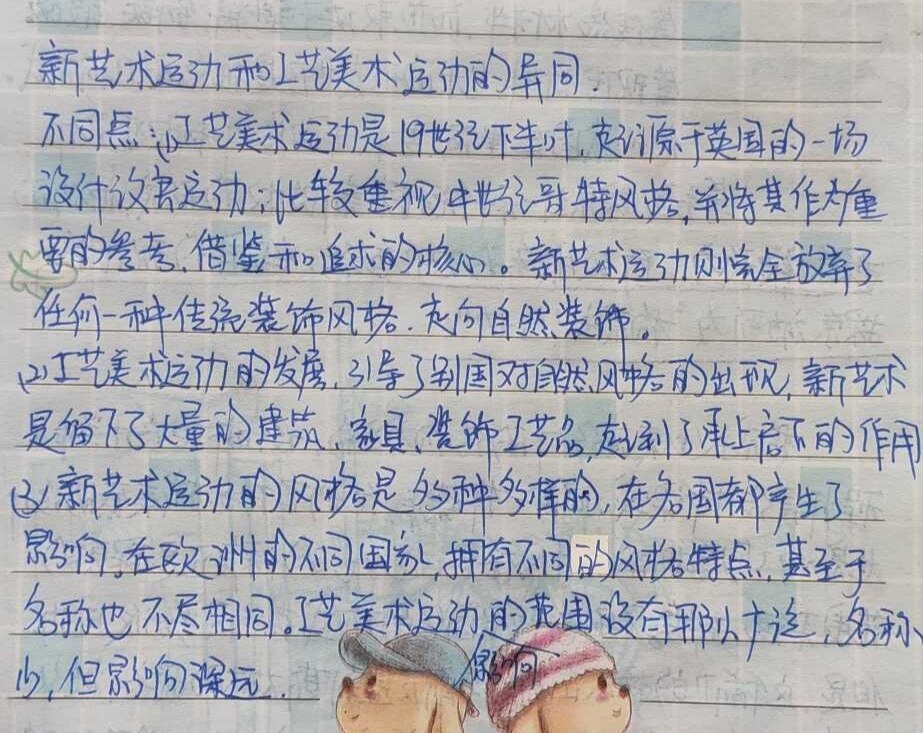 新艺术运动和工艺美术运动的异同.
不同点:(1)工艺美术运动是19世纪下半叶,起源于英国的一场
设计改良运动;比较重视中世纪哥特风格,并将其作为重
要的参考、借鉴和追求的核心。新艺术运动则完全放弃了
任何一种传统装饰风格.走向自然装饰。
(2)工艺美术运动的发展,引导了别国对自然风格的出现,新艺术
是留下了大量的建筑、家具、装饰工艺品,起到了承上启下的作用
(3)新艺术运动的风格是多种多样的,在各国都产生了
影响,在欧洲的不同国家,拥有不同的风格特点,甚至于
名称也不尽相同。工艺美术运动的影响范围没有那么广泛,名称
少,但影响深远.